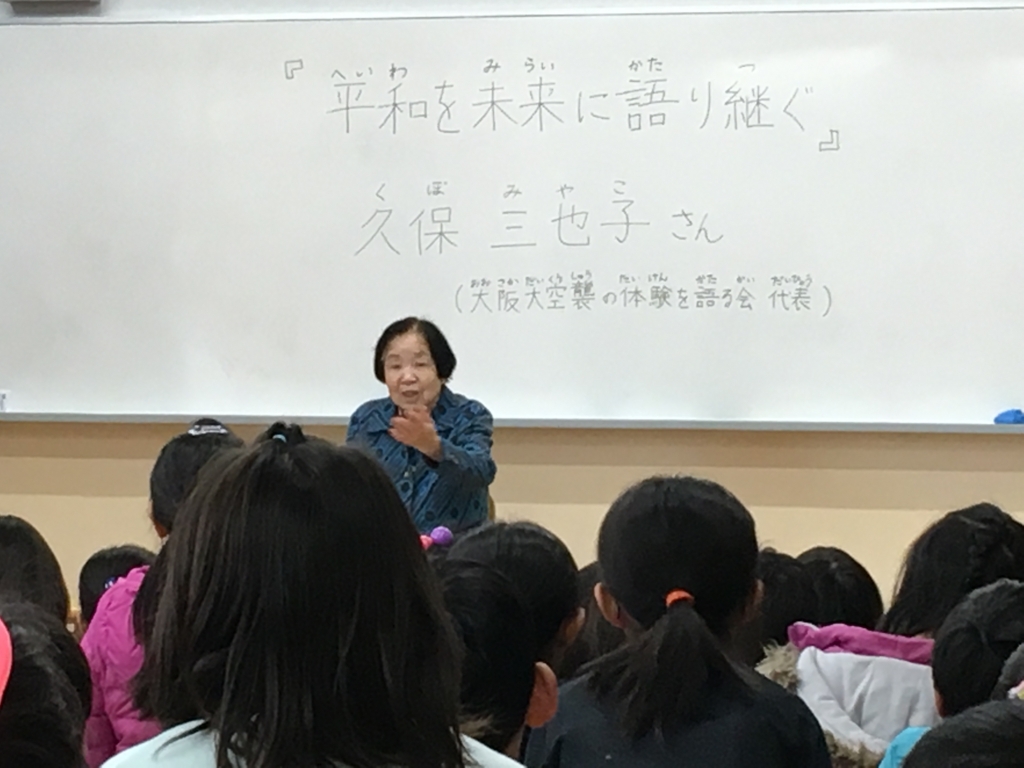 『平和を未来に語り継ぐ』
久保 三也子さん
(大阪大空襲の体験を語る会 代表)